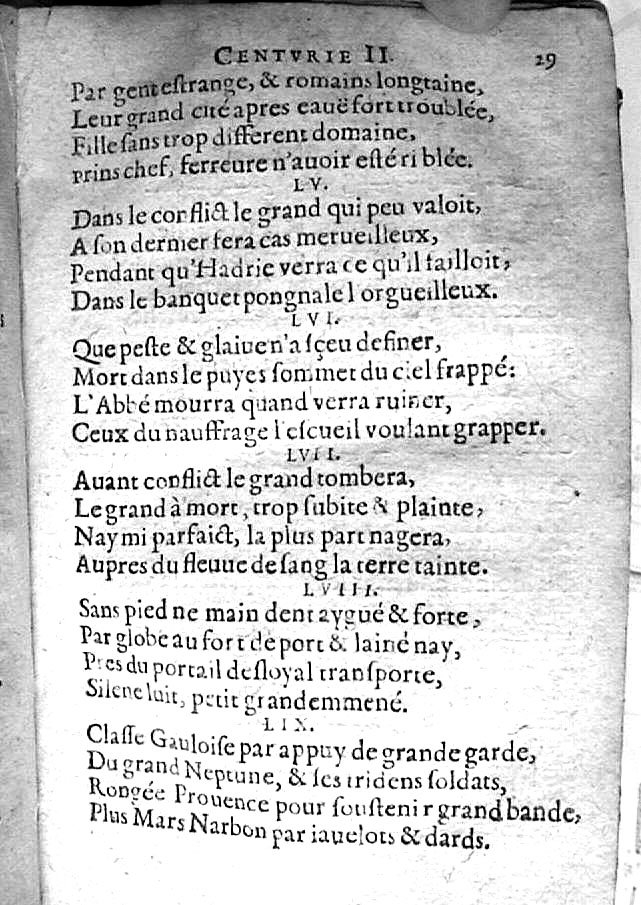 CENTVRIE II. 29
Par gent eſtrange, & romains longtaine,
Leur grand cité apres eauë fort troublée,
Fille ſans trop different domaine,
prins chef, ferreure n'auoir eſté ri blée.
LV.
Dans le conflict le grand qui peu valoit,
A ſon dernier fera cas merueilleux,
Pendant qu'Hadrie verra ce qu'il failloit,
Dans le banquet pongnale l'orgueilleux.
LVI.
Que peſte & glaiue n'a ſçeu definer,
Mort dans le puyes ſommet du ciel frappé:
L'Abbé mourra quand verra ruiner,
Ceux du nauffrage l'eſcueil voulant grapper.
LVII.
Auant conflict le grand tombera,
Le grand à mort, trop ſubite & plainte,
Nay mi parfaict, la plus part nagera,
Aupres du fleuue de ſang la terre tainte.
LVIII.
Sans pied ne main dent aygué & forte,
Par globe au fort de port & lainé nay,
Pres du portail deſloyal tranſporte,
Silene luit, petit grand emmené.
LIX.
Claſſe Gauloiſe par appuy de grande garde,
Du grand Neptune, & ſes tridens ſoldats,
Rongée Prouence pour ſouſtenir grand bande,
Plus Mars Narbon par iauelots & dards.